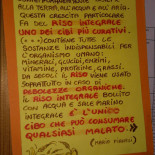 ALLA TERRA, ALL'ACQUA E ALL'ARIA.
QUESTA CRESCITA PARTICOLARE
FA DEL RISO INTEGRALE
UNO DEI CIBI PIU' CURATIVI.
CONTIENE TUTTE LE
SOSTANZE INDISPENSABILI PER
L'ORGANISMO UMANO:
MINERALI, GLUCIDI, ENZIMI,
VITAMINE, PROTEINE, GRASSI,
DA SECOLI IL RISO VIENE USATO
SOPRATTUTTO IN CASO DI
DEBOLEZZE ORGANICHE.
IL RISO INTEGRALE BOLLITO
CON ACQUA E SALE MARINO
INTEGRALE E' L'UNICO
CIBO CHE PUO' CONSUMARE
QUALSIASI MALATO.>>